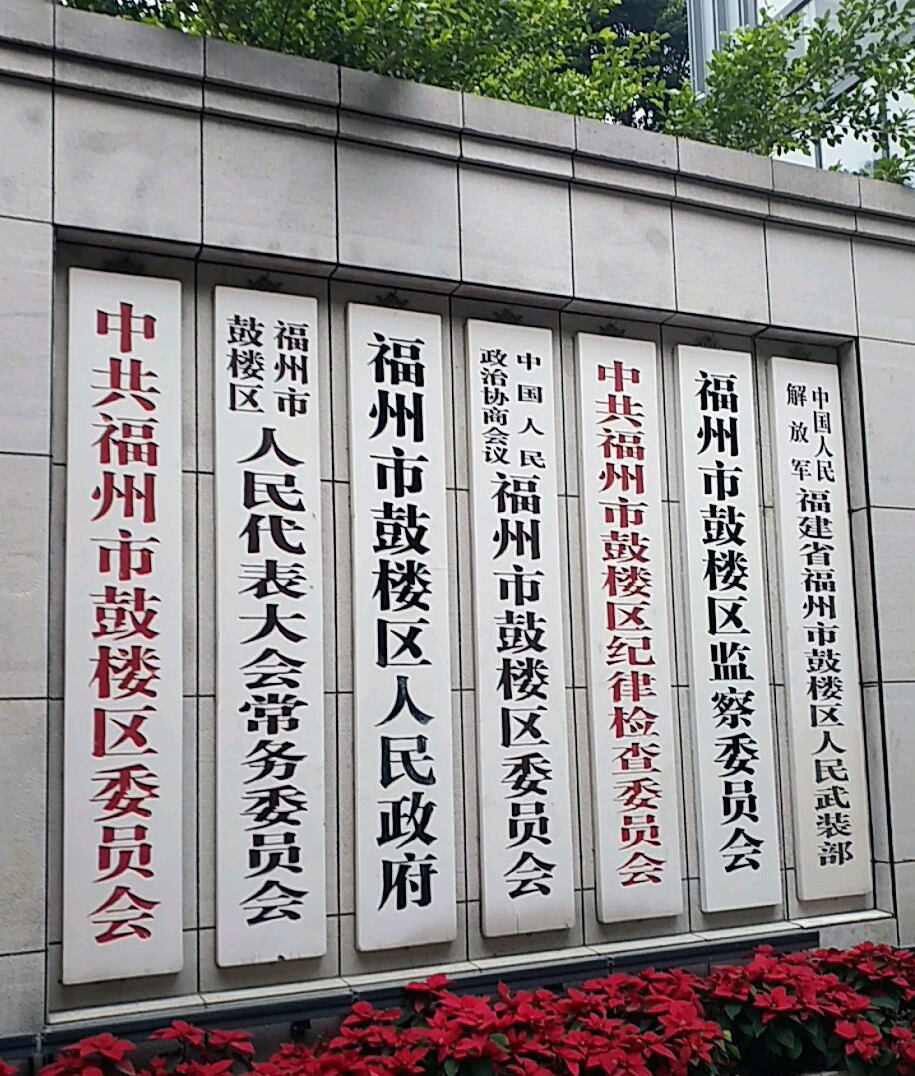 中共福州市鼓楼区委员会
福州市
鼓楼区
人民代表大会常务委员会
福州市鼓楼区人民政府
中国人民
政治协商会议
福州市鼓楼区委员会
中共福州市鼓楼区纪律检查委员会
福州市鼓楼区监察委员会
中国人民
解放军
福建省福州市鼓楼区人民武装部